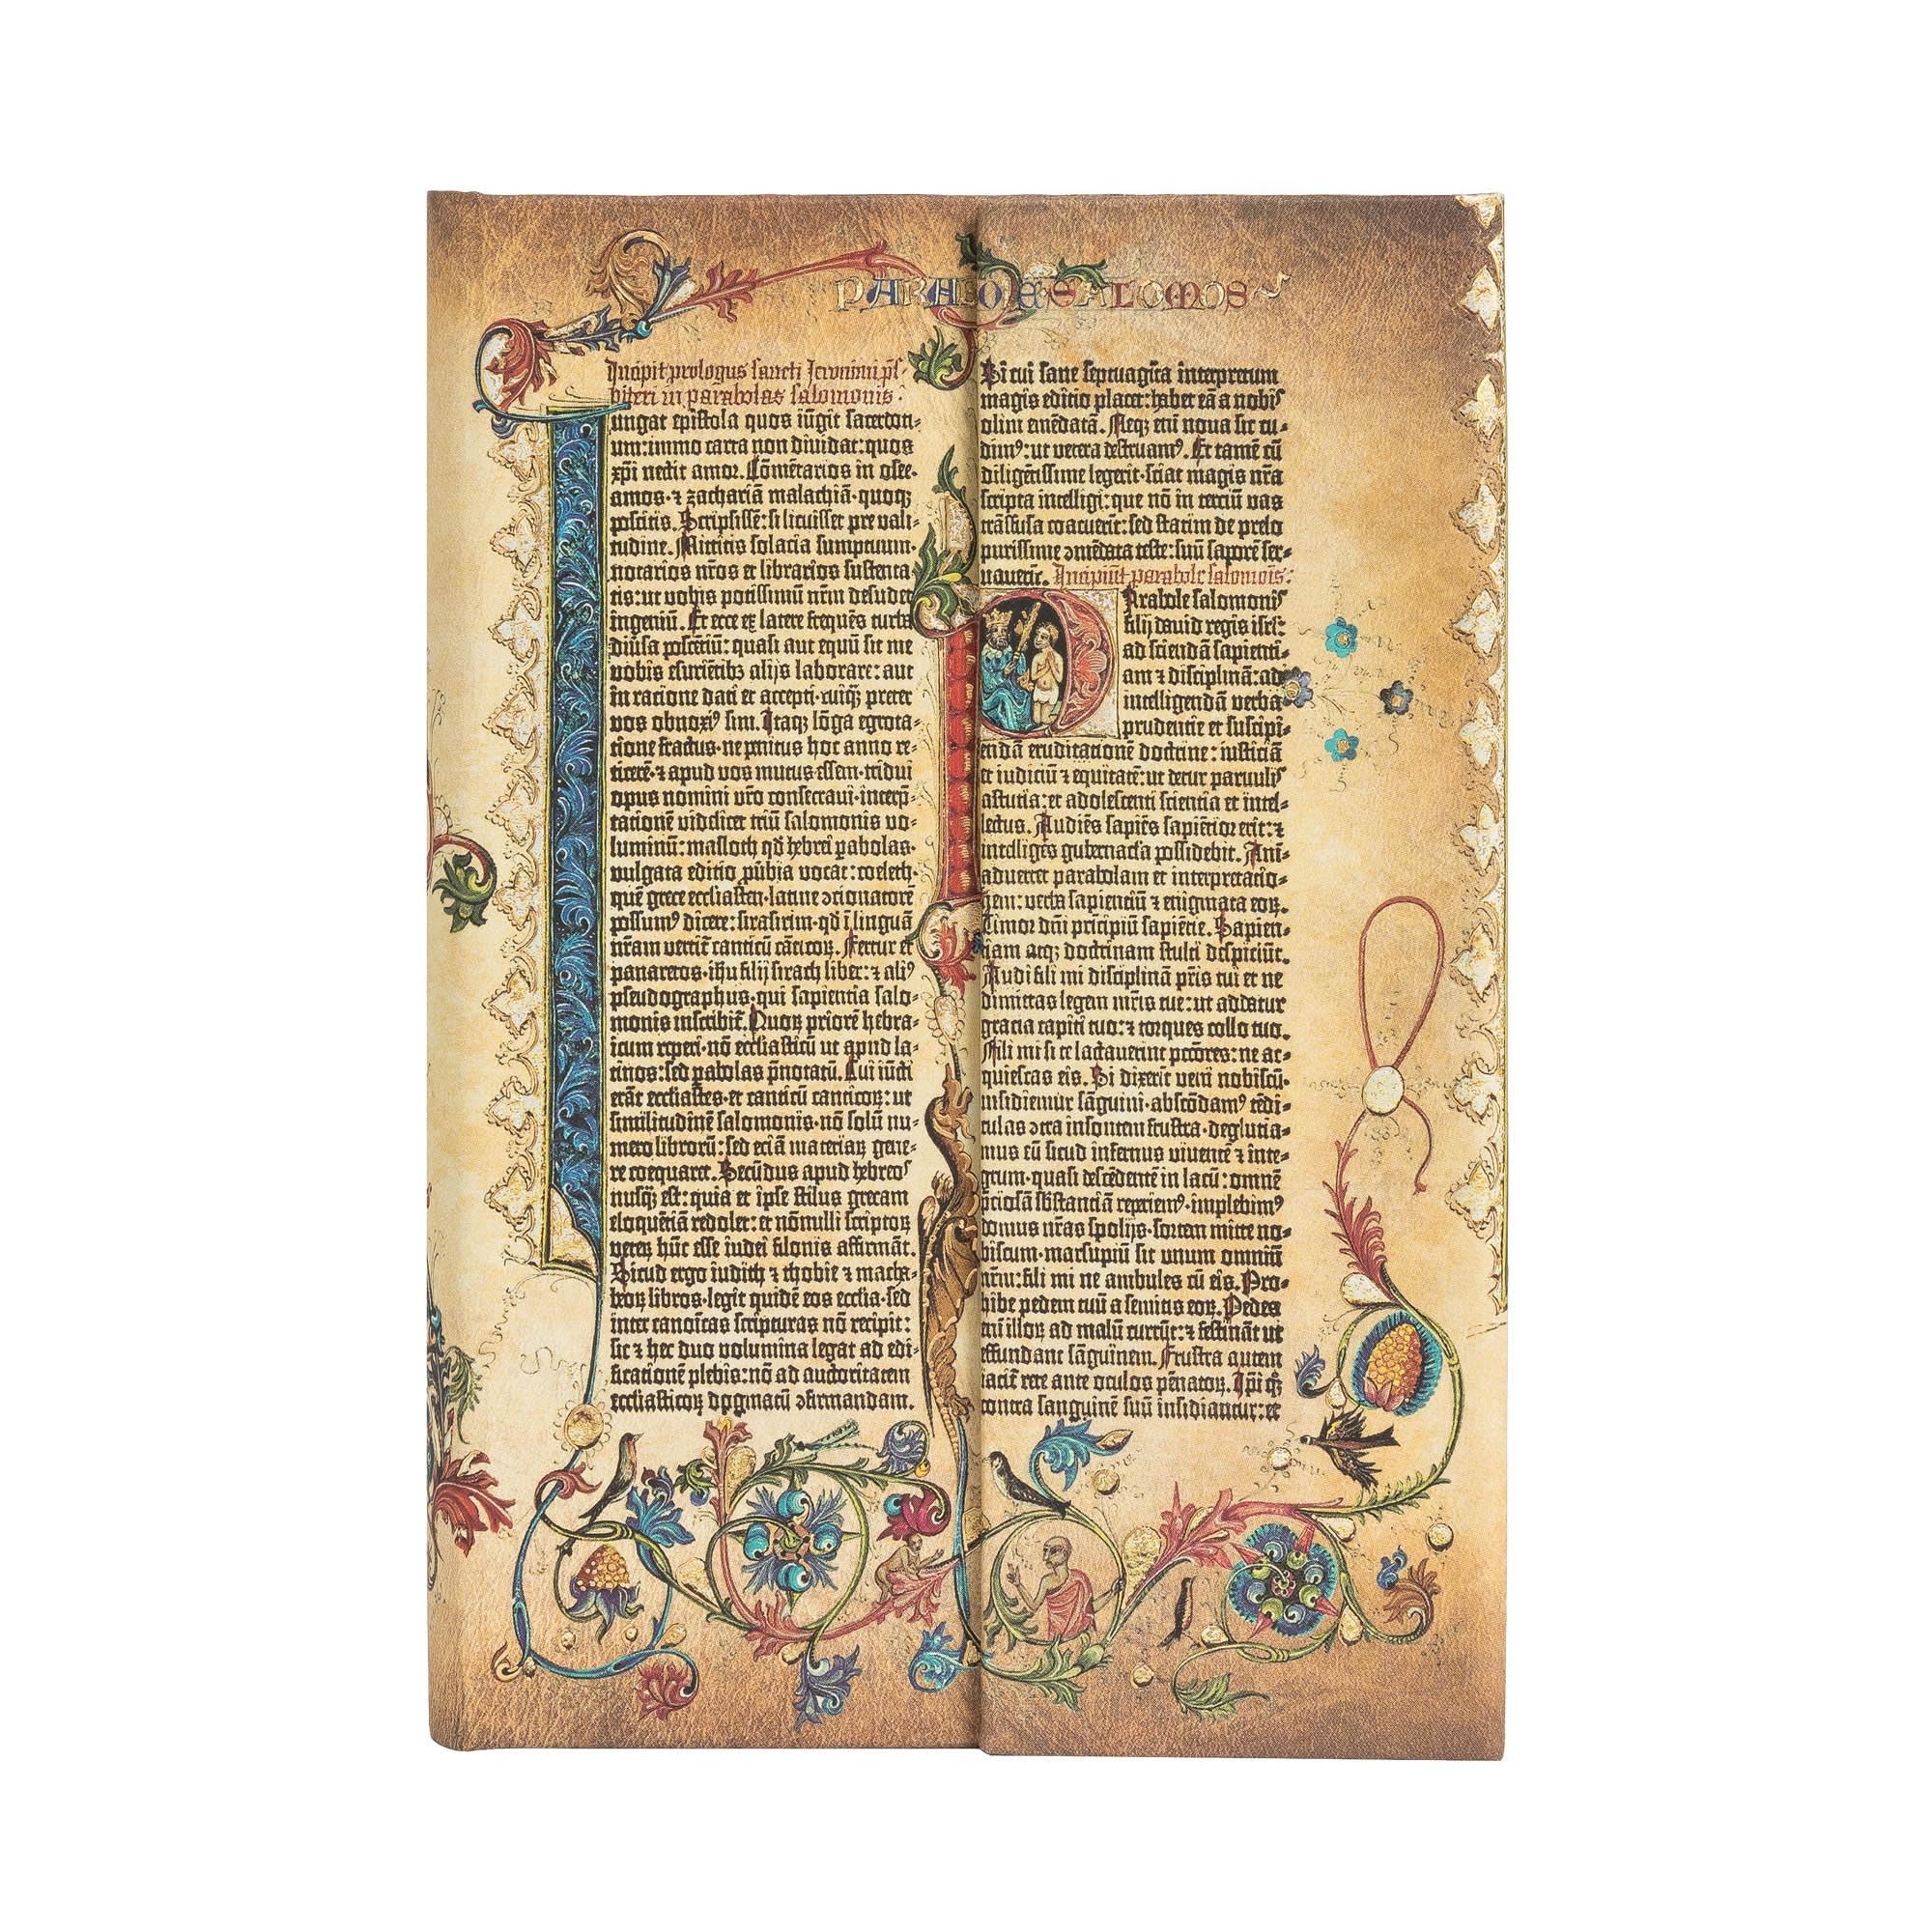 PARABOLE SALOMOIS
Incipit prologus sancti Jeronimi ps-
biteri in parabolas salomonis.
Iungat epistola quos iūgit sacerdoti-
um: immo carta non dividat: quos
xp̄i nectit amor. Cōmētarios in osee-
amos· ⁊ zachariā malachiā· quoqꝫ
poscitis. Scripsissē: si licuisset pre vali-
tudine. Mittitis solacia sumptuum-
notarios nr̄os et librarios sustenta-
tis: ut vobis potissimū nr̄m desudet
ingeniū. Et ecce ex latere frequēs turba
diūsa poscētiū: quasi aut equū sit me
vobis esuriētibꝫ alijs laborare: aut
in racione dati et accepti· cuiqꝫ preter
vos obnoxiꝰ sim. Itaqꝫ lōga egrota-
tione fractus· ne penitus hoc anno re-
ticerē· ⁊ apud vos mutus essem· tridui
opus nomini vr̄o consecraui· interp̄-
tationē videlicet triū salomonis vo-
luminū: masloth qd̄ hebrei ꝑabolas·
vulgata editio ꝓūbia vocat: coeleth·
quē grece ecclesiasten· latine ↄcionatorē
possumꝰ dicere: sirasirim· qd̄ ī linguā
nr̄am vertit̄ canticū cāticoꝝ. Fertur et
panaretos· ih̄u filij sirach liber: ⁊ aliꝰ
pseudographus· qui sapientia salo-
monis inscribit̄. Quoꝝ priorē hebra-
icum reperi· nō ecclesiasticū ut apud la-
tinos: sed ꝑabolas p̄notatū. Cui iūcti
erāt ecclesiastes· et canticū canticoꝝ: ut
similitudinē salomonis· nō solū nu-
mero librorū: sed eciā materiaꝝ gene-
re coequaret. Secūdus apud hebreos
nusqꝫ est: quia et ipse stilus grecam
eloquētiā redolet: et nōnulli scriptoꝝ
veteꝝ hūc esse iudei filonis affirmāt.
Sicud ergo iudith ⁊ thobie ⁊ macha-
beoꝝ libros· legit quidē eos ecclesia· sed
inter canoīcas scripturas nō recipit:
sic ⁊ hec duo volumina legat ad edi-
ficationē plebis: nō ad auctoritatem
ecclesiasticoꝝ dogmatū ↄfirmandam.
Si cui sane septuagīta interpretum
magis editio placet: habet eā a nobis
olim emēdatā. Neqꝫ em̄ noua sic cu-
dimꝰ: ut vetera destruamꝰ. Et tamē cū
diligētissime legerit· sciat magis nr̄a
scripta intelligi: que nō in terciū vas
trāsfusa coacuerīt: sed statim de prelo
purissime ↄmēdata teste: suū saporē ser-
uauerīt. Incipiūt parabole salomois:
Parabole salomonis
filij dauid regis isrl̄:
ad sciendā sapienti-
am ⁊ disciplinā: ad
intelligendā verba
prudentie et suscipi-
endā eruditationē doctrine: iusticiā
et iudiciū ⁊ equitatē: ut detur paruulis
astutia: et adolescenti scientia et intel-
lectus. Audiēs sapiēs sapiētior erit: ⁊
intelligēs gubernacl̄a possidebit. Ani-
aduertet parabolam et interpretatio-
nem: verba sapientiū ⁊ enigmata eoꝝ.
Timor dn̄i pricipiū sapiētie. Sapien-
tiam atqꝫ doctrinam stulti despiciūt.
Audi fili mi disciplinā p̄ris tui et ne
dimittas legem mr̄is tue: ut addatur
gracia capiti tuo: ⁊ torques collo tuo.
Fili mi si te lactauerint pctōres: ne ac-
quiescas eis. Si dixerīt veni nobiscū·
insidiemur sāguini· abscōdamꝰ tēdi-
culas ↄtra insontem frustra· deglutia-
mus eū sicud infernus viuentē ⁊ inte-
grum· quasi descēdentē in lacū: omnē
p̄ciosā sb̄stantiā reperiemꝰ· implebimꝰ
domus nr̄as spolijs· sortem mitte no-
biscum· marsupiū sit unum omniū
nr̄m: fili mi ne ambules cū eis. Pro-
hibe pedem tuū a semitis eoꝝ. Pedes
em̄ illoꝝ ad malū currūt: ⁊ festināt ut
effundant sāguinem. Frustra autem
iacit̄ rete ante oculos pēnatoꝝ. Ip̄i qꝫ
contra sanguinē suū insidiantur: et